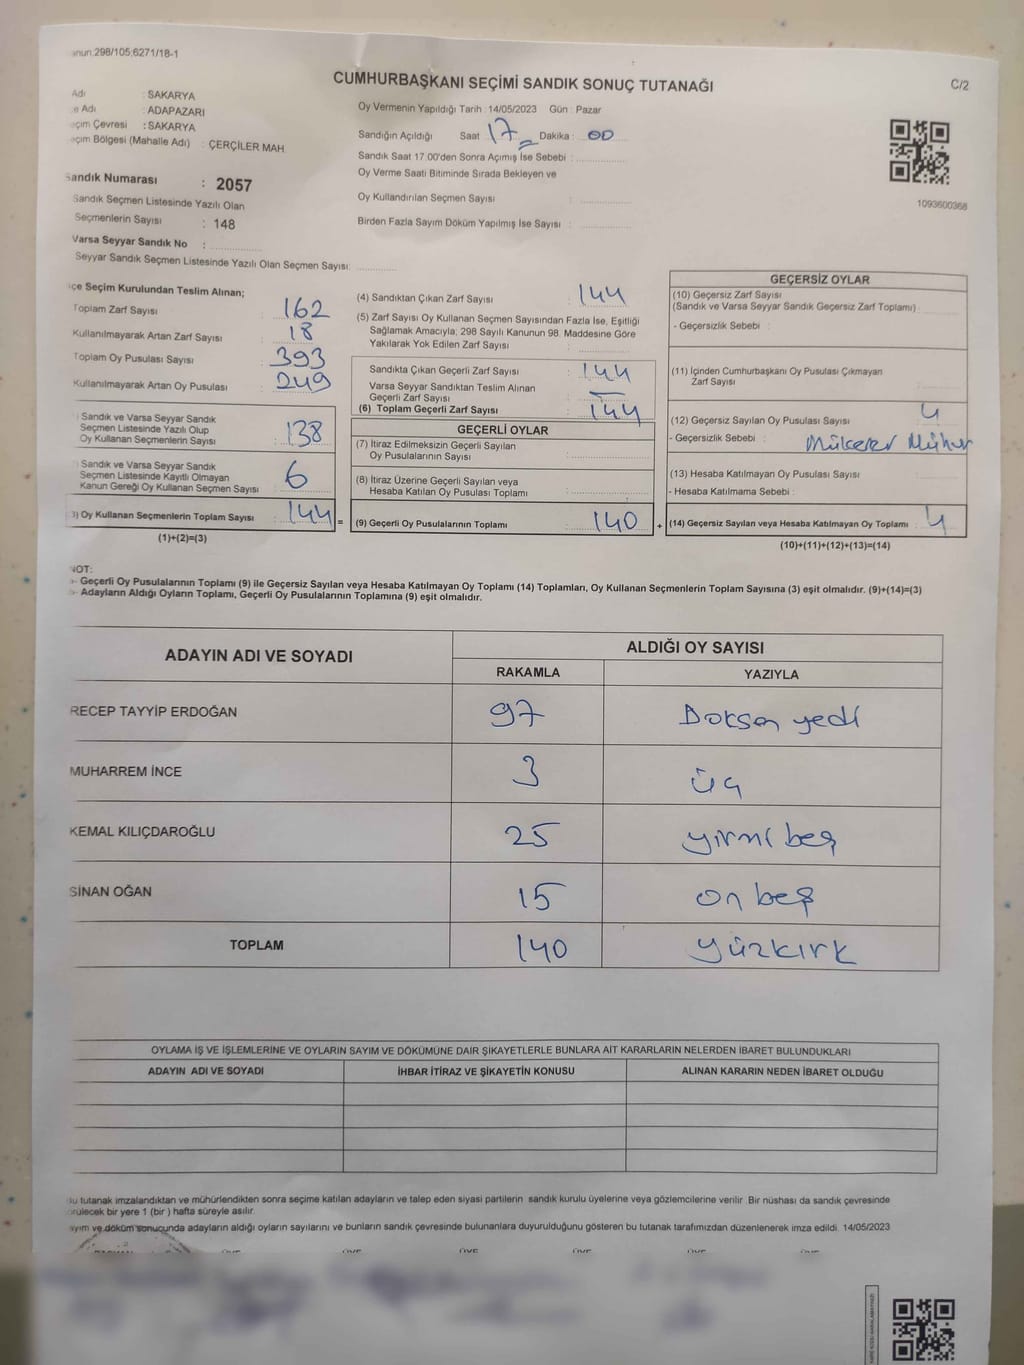 298/105;6271/18-1
CUMHURBAŞKANI SEÇİMİ SANDIK SONUÇ TUTANAĞI
C/2
Adı : SAKARYA
Adı : ADAPAZARI
Çevresi : SAKARYA
Bölgesi (Mahalle Adı) : ÇERÇİLER MAH.
Sandık Numarası : 2057
Sandık Seçmen Listesinde Yazılı Olan
Seçmenlerin Sayısı : 148
Varsa Seyyar Sandık No :
Seyyar Sandık Seçmen Listesinde Yazılı Olan Seçmen Sayısı:
Oy Vermenin Yapıldığı Tarih : 14/05/2023 Gün : Pazar
Sandığın Açıldığı Saat : 17 Dakika : 00
Sandık Saat 17.00'den Sonra Açımış İse Sebebi :
Oy Verme Saati Bitiminde Sırada Bekleyen ve
Oy Kullandırılan Seçmen Sayısı :
Birden Fazla Sayım Döküm Yapılmış İse Sayısı :
1093600368
Seçim Kurulundan Teslim Alınan;
Toplam Zarf Sayısı : 162
Kullanılmayarak Artan Zarf Sayısı : 18
Toplam Oy Pusulası Sayısı : 393
Kullanılmayarak Artan Oy Pusulası : 249
Sandık ve Varsa Seyyar Sandık
Seçmen Listesinde Yazılı Olup
Oy Kullanan Seçmenlerin Sayısı : 138
Sandık ve Varsa Seyyar Sandık
Seçmen Listesinde Kayıtlı Olmayan
Kanun Gereği Oy Kullanan Seçmen Sayısı : 6
3) Oy Kullanan Seçmenlerin Toplam Sayısı : 144 =
(1)+(2)=(3)
(4) Sandıktan Çıkan Zarf Sayısı : 144
(5) Zarf Sayısı Oy Kullanan Seçmen Sayısından Fazla İse, Eşitliği
Sağlamak Amacıyla; 298 Sayılı Kanunun 98. Maddesine Göre
Yakılarak Yok Edilen Zarf Sayısı :
Sandıkta Çıkan Geçerli Zarf Sayısı : 144
Varsa Seyyar Sandıktan Teslim Alınan
Geçerli Zarf Sayısı : —
(6) Toplam Geçerli Zarf Sayısı : 144
GEÇERLİ OYLAR
(7) İtiraz Edilmeksizin Geçerli Sayılan
Oy Pusulalarının Sayısı :
(8) İtiraz Üzerine Geçerli Sayılan veya
Hesaba Katılan Oy Pusulası Toplamı :
(9) Geçerli Oy Pusulalarının Toplamı : 140 +
GEÇERSİZ OYLAR
(10) Geçersiz Zarf Sayısı
(Sandık ve Varsa Seyyar Sandık Geçersiz Zarf Toplamı) :
- Geçersizlik Sebebi :
(11) İçinden Cumhurbaşkanı Oy Pusulası Çıkmayan
Zarf Sayısı :
(12) Geçersiz Sayılan Oy Pusulası Sayısı : 4
- Geçersizlik Sebebi : Mükerer Mühür
(13) Hesaba Katılmayan Oy Pusulası Sayısı :
- Hesaba Katılmama Sebebi :
(14) Geçersiz Sayılan veya Hesaba Katılmayan Oy Toplamı : 4
(10)+(11)+(12)+(13)=(14)
NOT:
Geçerli Oy Pusulalarının Toplamı (9) ile Geçersiz Sayılan veya Hesaba Katılmayan Oy Toplamı (14) Toplamları, Oy Kullanan Seçmenlerin Toplam Sayısına (3) eşit olmalıdır. (9)+(14)=(3)
Adayların Aldığı Oyların Toplamı, Geçerli Oy Pusulalarının Toplamına (9) eşit olmalıdır.
ADAYIN ADI VE SOYADI
ALDIĞI OY SAYISI
RAKAMLA YAZIYLA
RECEP TAYYİP ERDOĞAN 97 Doksan yedi
MUHARREM İNCE 3 üç
KEMAL KILIÇDAROĞLU 25 yirmi beş
SİNAN OĞAN 15 on beş
TOPLAM 140 yüzkırk
OYLAMA İŞ VE İŞLEMLERİNE VE OYLARIN SAYIM VE DÖKÜMÜNE DAİR ŞİKAYETLERLE BUNLARA AİT KARARLARIN NELERDEN İBARET BULUNDUKLARI
ADAYIN ADI VE SOYADI İHBAR İTİRAZ VE ŞİKAYETİN KONUSU ALINAN KARARIN NEDEN İBARET OLDUĞU
tutanak imzalandıktan ve mühürlendikten sonra seçime katılan adayların ve talep eden siyasi partilerin sandık kurulu üyelerine veya gözlemcilerine verilir. Bir nüshası da sandık çevresinde
bir yere 1 (bir) hafta süreyle asılır.
ve döküm sonucunda adayların aldığı oyların sayılarını ve bunların sandık çevresinde bulunanlara duyurulduğunu gösteren bu tutanak tarafımızdan düzenlenerek imza edildi. 14/05/2023